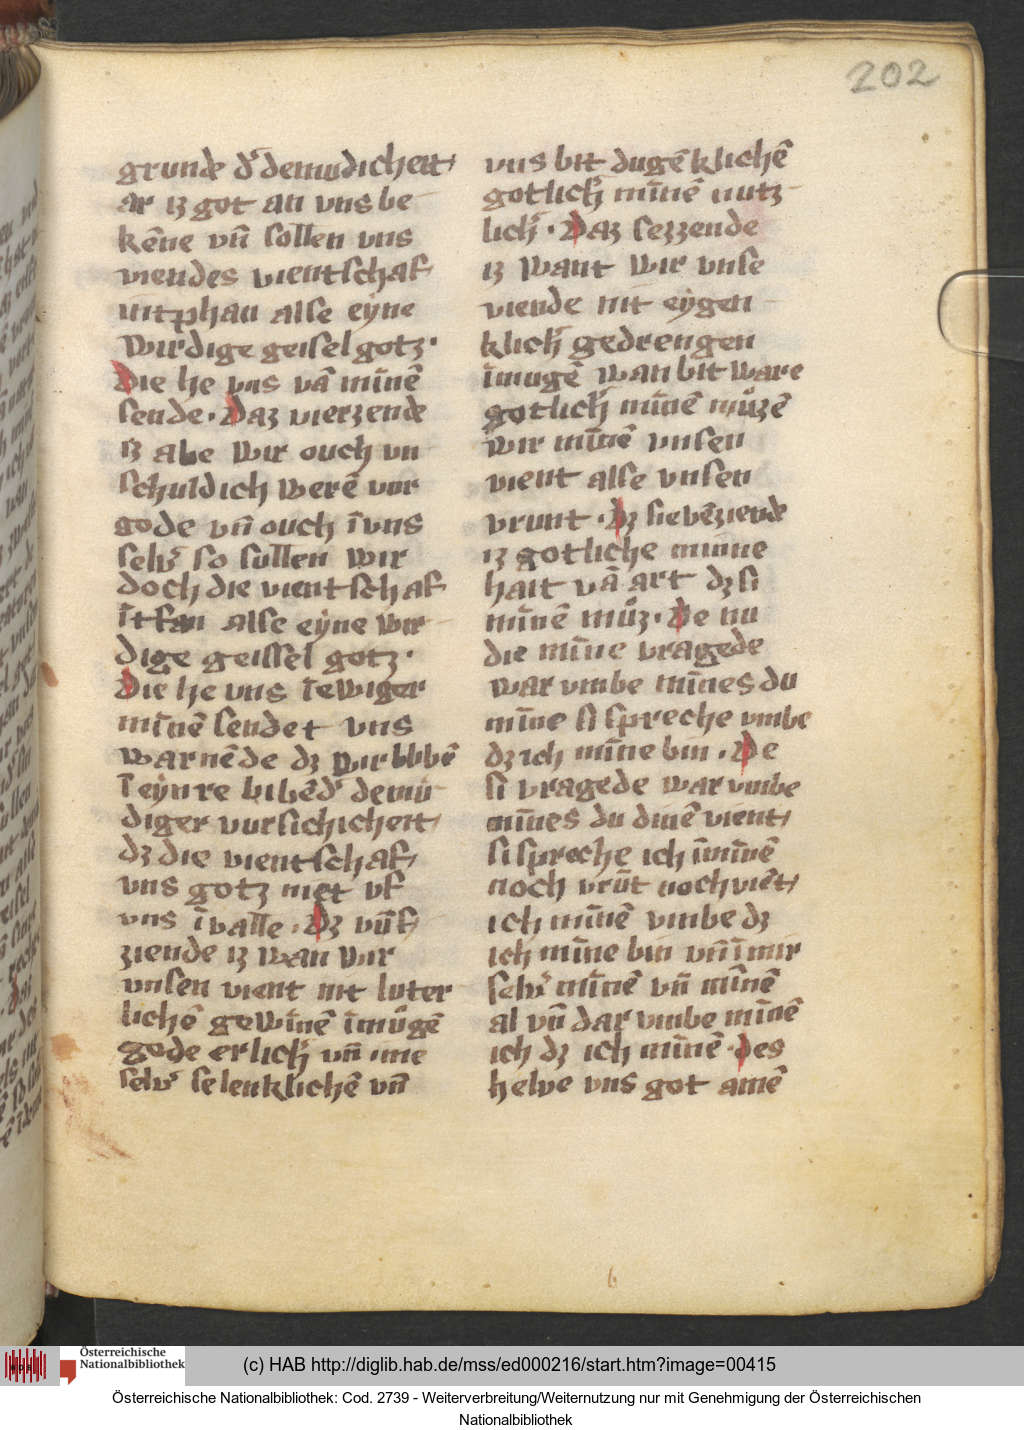 202
grunde d' demudicheit
ar iz got an vns be
kēne vn̄ sollen vns
viendes vientschaf
intphan alse eyne
wirdige geisel gotz·
Die he vns vā minē
sende· Daz vierzende
iz abe wir ouch vn
schuldich werē vor
gode vn̄ ouch ī vns
selv' so sullen wir
doch die vientschaf
ītfan alse eyne wir
dige geissel gotz·
Die he vns īewiger
minē sendet vns
warnēde dz wir blibē
ī eynre blibēd' demů
diger vursichicheit
dz die vientschaf
vns gotz niet vf
vns ī valle· Dz vūf
ziende iz wan wir
vnsen vient mit luter
lichē gewinē imůgē
gode erlich' vn̄ ime
selv' selenklichē vn̄
vns bit dugēklichē
gotlich' minē nutz
lich'· Daz sezzende
iz want wir vnse
viende nit eygen
klich' gedrengen
imugē wan bit ware
gotlich' minē můzē
wir minē vnsen
vient alse vnsen
vrunt· Dz sievēziende
iz gotliche minne
hait vā art dz si
minē můz· De nu
die mīne vragede
war vmbe mīnes du
mīne si spreche vmbe
dz ich mīne bin· De
si vragede war vmbe
mīnes du dinē vient
si spreche ich īminē
noch vrūt noch viēt
ich minē vmbe dz
ich mīne bin vn̄ ī mir
selv' minē vn̄ minē
al vn̄ dar vmbe minē
ich dz ich minē· des
helve vns got amē
Österreichische
Nationalbibliothek
(c) HAB http://diglib.hab.de/mss/ed000216/start.htm?image=00415
Österreichische Nationalbibliothek: Cod. 2739 - Weiterverbreitung/Weiternutzung nur mit Genehmigung der Österreichischen
Nationalbibliothek